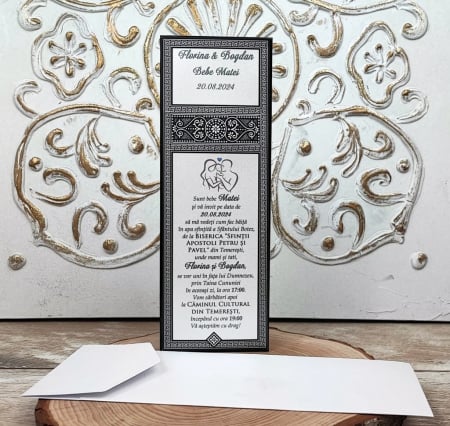 Florina & Bogdan
Bebe Matei
20.08.2024
Sunt bebe Matei
și vă invit pe data de
20.08.2024
să mă vedeți cum fac băiță
în apa sfințită a Sfântului Botez,
de la BISERICA "SFINȚII
APOSTOLI PETRU ȘI
PAVEL" din Temerești,
unde mami și tati,
Florina și Bogdan,
se vor uni în fața lui Dumnezeu,
prin Taina Cununiei
în aceeași zi, la ora 17:00.
Vom sărbători apoi
la CĂMINUL CULTURAL
DIN TEMEREȘTI,
începând cu ora 19:00
Vă așteptăm cu drag!